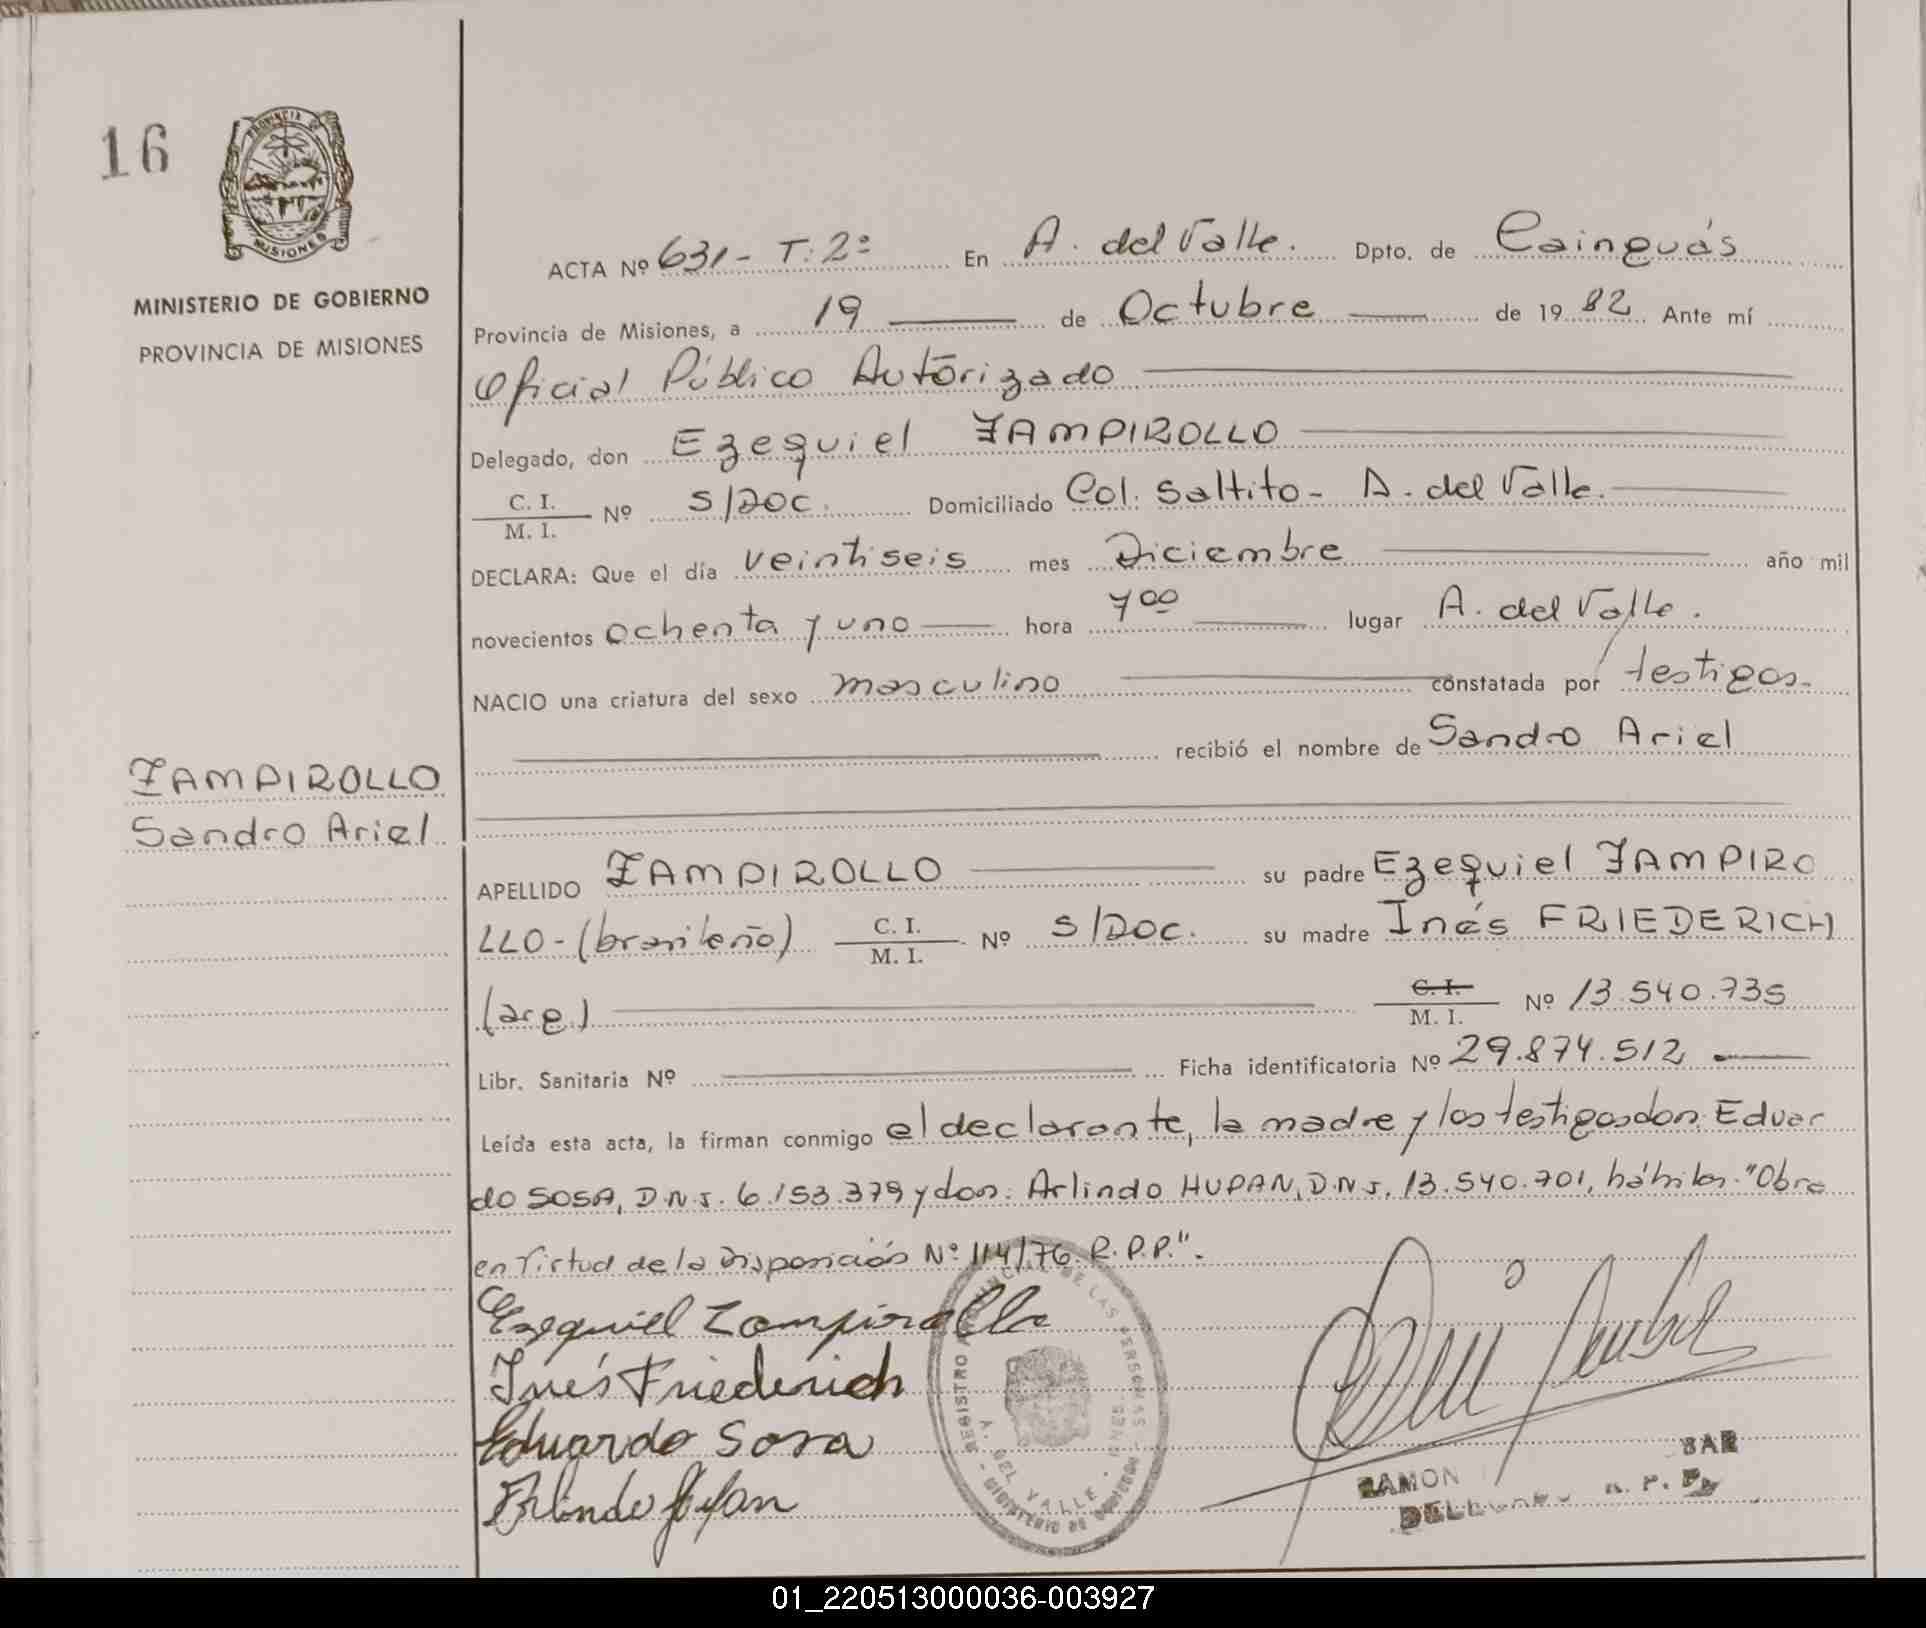 16
PROVINCIA DE
MISIONES
MINISTERIO DE GOBIERNO
PROVINCIA DE MISIONES
ACTA Nº 631 - T: 2º En A. del Valle. Dpto. de Cainguás
Provincia de Misiones, a 19 de Octubre de 1982 Ante mí
Oficial Público Autorizado
Delegado, don Ezequiel ZAMPIROLLO
C. I.
M. I. Nº S/Doc. Domiciliado Col. Saltito - A. del Valle.
DECLARA: Que el día veintiseis mes Diciembre año mil
novecientos ochenta y uno hora 7 00 lugar A. del Valle.
NACIO una criatura del sexo masculino constatada por testigos.
recibió el nombre de Sandro Ariel
ZAMPIROLLO
Sandro Ariel
APELLIDO ZAMPIROLLO su padre Ezequiel ZAMPIRO
LLO - (brasileño) C. I. M. I. Nº S/Doc. su madre Inés FRIEDERICH
(arg) C. I. M. I. Nº 13.540.735
Libr. Sanitaria Nº Ficha identificatoria Nº 29.874.512
Leída esta acta, la firman conmigo el declarante, la madre y los testigos don: Eduar
do SOSA, D.N.I. 6.153.379 y don: Arlindo HUPAN, D.N.I. 13.540.701, hábiles. "Obra
en virtud de la Disposición Nº 114/76 R.P.P.".
Ezequiel Zampirollo
Inés Friederich
Eduardo Sosa
Arlindo
REGISTRO PROVINCIAL DE LAS PERSONAS
A. DEL VALLE
MINISTERIO DE GOBIERNO
RAMON
01_220513000036-003927